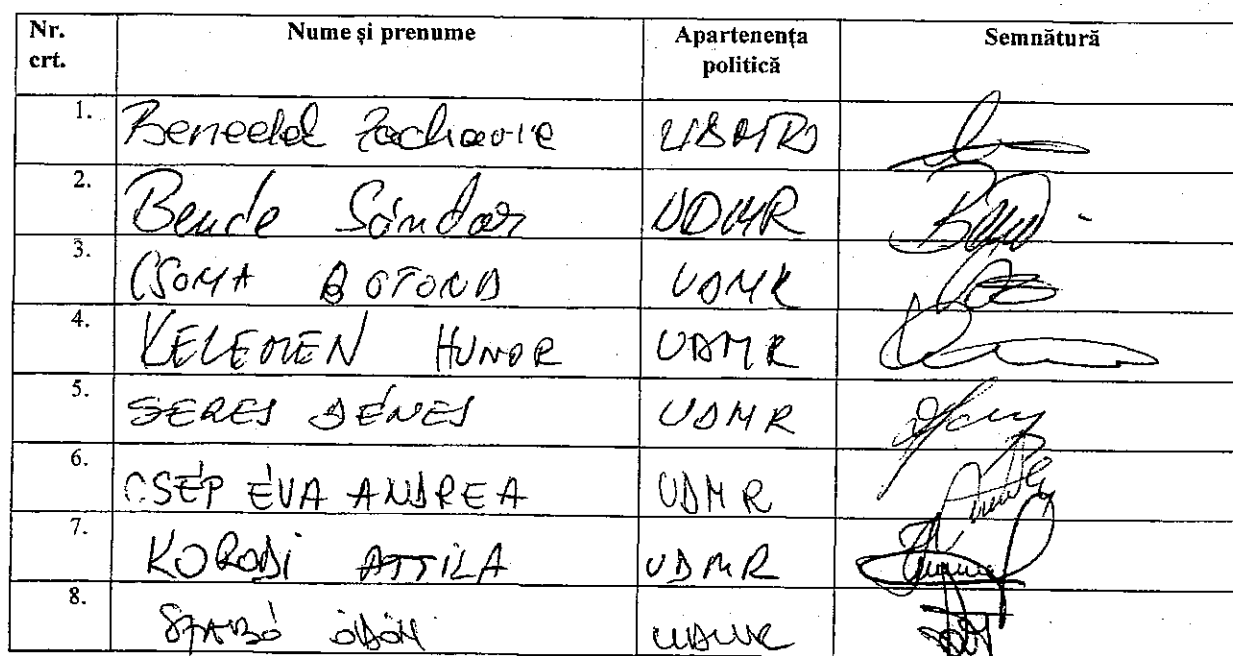 Nr. crt. Nume și prenume Apartenența politică Semnătură
1. Benedek Zacharie UDMR
2. Bende Sándor UDMR
3. CSOMA BOTOND UDMR
4. KELEMEN HUNOR UDMR
5. SERES DÉNES UDMR
6. CSÉP ÉVA ANDREA UDMR
7. KORODI ATTILA UDMR
8. SZABÓ ÖDÖN UDMR